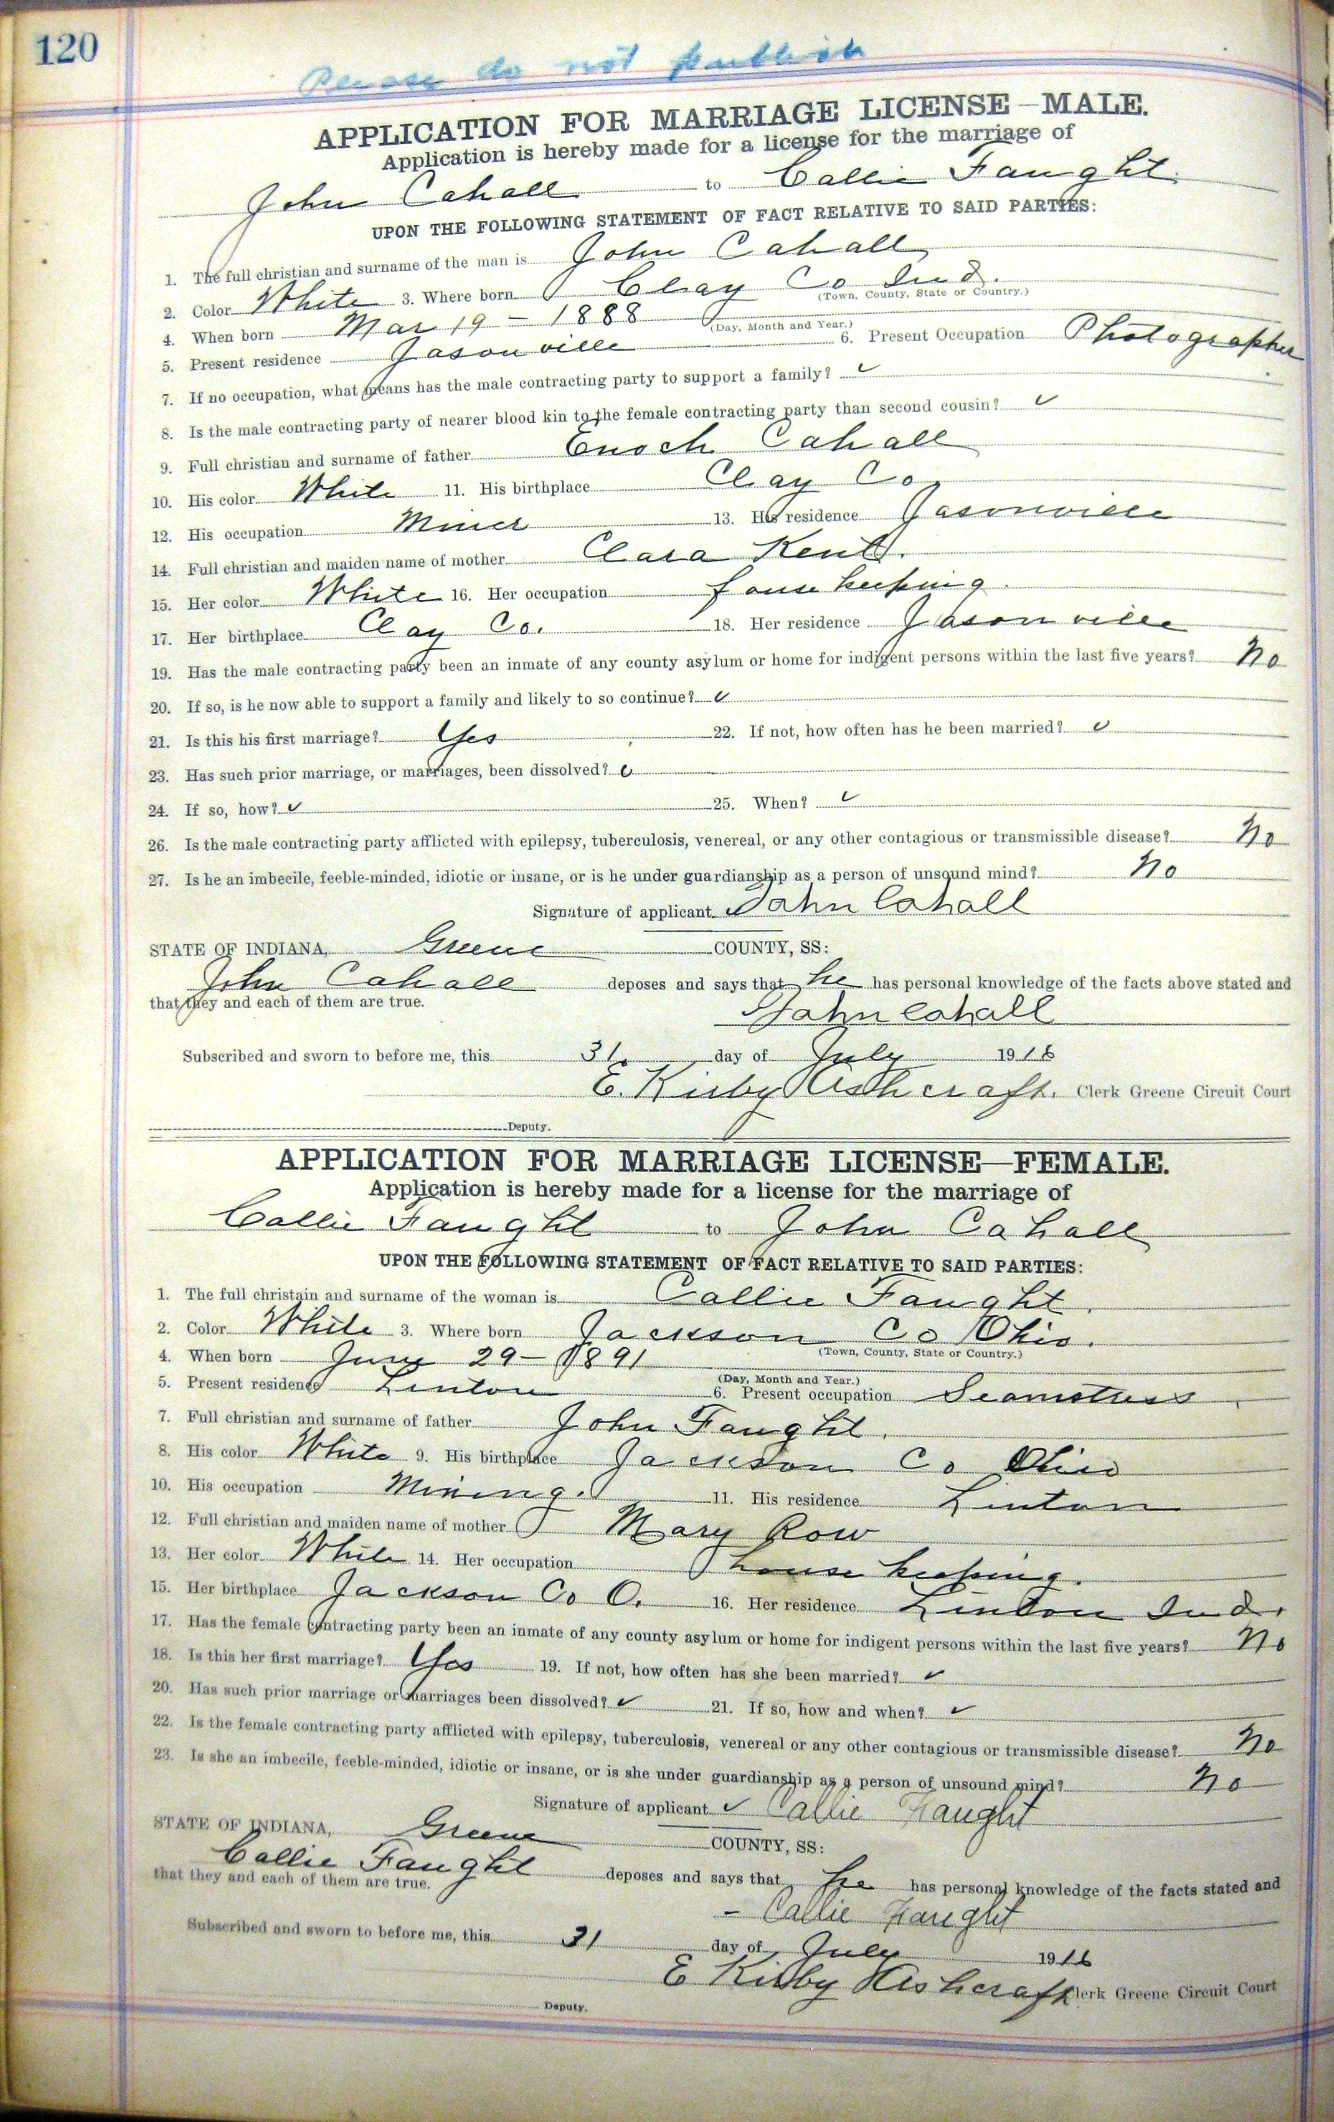 120
Please do not publish
APPLICATION FOR MARRIAGE LICENSE—MALE.
Application is hereby made for a license for the marriage of
John Cahall to Callie Faught
UPON THE FOLLOWING STATEMENT OF FACT RELATIVE TO SAID PARTIES:
1. The full christian and surname of the man is John Cahall
2. Color White 3. Where born Clay Co Ind.
(Town, County, State or Country.)
4. When born Mar 19 - 1888
(Day, Month and Year.)
5. Present residence Jasonville 6. Present Occupation Photographer
7. If no occupation, what means has the male contracting party to support a family? ✓
8. Is the male contracting party of nearer blood kin to the female contracting party than second cousin? ✓
9. Full christian and surname of father Enoch Cahall
10. His color White 11. His birthplace Clay Co
12. His occupation Miner 13. His residence Jasonville
14. Full christian and maiden name of mother Clara Kent.
15. Her color White 16. Her occupation house keeping.
17. Her birthplace Clay Co. 18. Her residence Jasonville
19. Has the male contracting party been an inmate of any county asylum or home for indigent persons within the last five years? No
20. If so, is he now able to support a family and likely to so continue? ✓
21. Is this his first marriage? Yes 22. If not, how often has he been married? ✓
23. Has such prior marriage, or marriages, been dissolved? ✓
24. If so, how? ✓ 25. When? ✓
26. Is the male contracting party afflicted with epilepsy, tuberculosis, venereal, or any other contagious or transmissible disease? No
27. Is he an imbecile, feeble-minded, idiotic or insane, or is he under guardianship as a person of unsound mind? No
Signature of applicant John Cahall
STATE OF INDIANA, Greene COUNTY, SS:
John Cahall deposes and says that he has personal knowledge of the facts above stated and
that they and each of them are true.
John Cahall
Subscribed and sworn to before me, this 31 day of July 1916
E. Kirby Ashcraft. Clerk Greene Circuit Court
Deputy.
APPLICATION FOR MARRIAGE LICENSE—FEMALE.
Application is hereby made for a license for the marriage of
Callie Faught to John Cahall
UPON THE FOLLOWING STATEMENT OF FACT RELATIVE TO SAID PARTIES:
1. The full christain and surname of the woman is Callie Faught.
2. Color White 3. Where born Jackson Co Ohio.
(Town, County, State or Country.)
4. When born June 29 - 1891
(Day, Month and Year.)
5. Present residence Linton 6. Present occupation Seamstress
7. Full christian and surname of father John Faught.
8. His color White 9. His birthplace Jackson Co Ohio
10. His occupation Mining. 11. His residence Linton
12. Full christian and maiden name of mother Mary Row
13. Her color White 14. Her occupation house keeping.
15. Her birthplace Jackson Co O. 16. Her residence Linton Ind.
17. Has the female contracting party been an inmate of any county asylum or home for indigent persons within the last five years? No
18. Is this her first marriage? Yes 19. If not, how often has she been married? ✓
20. Has such prior marriage or marriages been dissolved? ✓ 21. If so, how and when? ✓
22. Is the female contracting party afflicted with epilepsy, tuberculosis, venereal or any other contagious or transmissible disease? No
23. Is she an imbecile, feeble-minded, idiotic or insane, or is she under guardianship as a person of unsound mind? No
Signature of applicant ✓ Callie Faught
STATE OF INDIANA, Greene COUNTY, SS:
Callie Faught deposes and says that he has personal knowledge of the facts stated and
that they and each of them are true.
- Callie Faught
Subscribed and sworn to before me, this 31 day of July 1916
E Kirby Ashcraft Clerk Greene Circuit Court
Deputy.